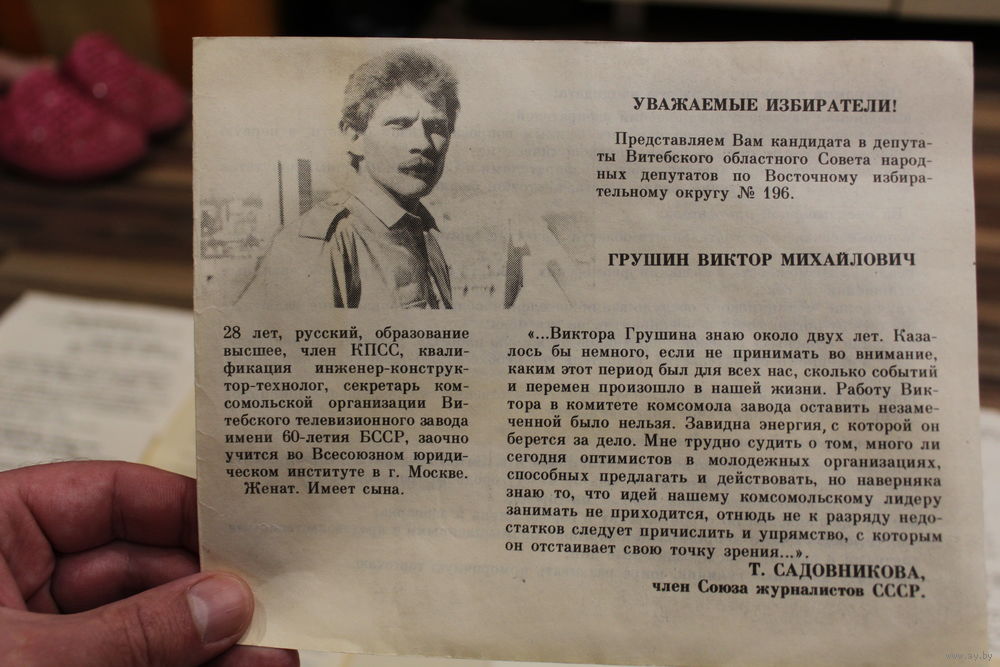 УВАЖАЕМЫЕ ИЗБИРАТЕЛИ!
Представляем Вам кандидата в депута-
ты Витебского областного Совета народ-
ных депутатов по Восточному избира-
тельному округу № 196.
ГРУШИН ВИКТОР МИХАЙЛОВИЧ
23 лет, русский, образование
высшее, член КПСС, квали-
фикация инженер-конструк-
тор-технолог, секретарь ком-
сомольской организации Ви-
тебского телевизионного завода
имени 60-летия БССР, заочно
учится во Всесоюзном юриди-
ческом институте в г. Москве.
Женат. Имеет сына.
«...Виктора Грушина знаю около двух лет. Каза-
лось бы немного, если не принимать во внимание,
каким этот период был для всех нас, сколько событий
и перемен произошло в нашей жизни. Работу Вик-
тора в комитете комсомола завода оставить незаме-
ченной было нельзя. Завидна энергия, с которой он
берется за дело. Мне трудно судить о том, много ли
сегодня оптимистов в молодежных организациях,
способных предлагать и действовать, но наверняка
знаю то, что идей нашему комсомольскому лидеру
занимать не приходится, отнюдь не к разряду недо-
статков следует причислить и упрямство, с которым
он отстаивает свою точку зрения...».
Т. САДОВНИКОВА,
член Союза журналистов СССР.
www.ay.by